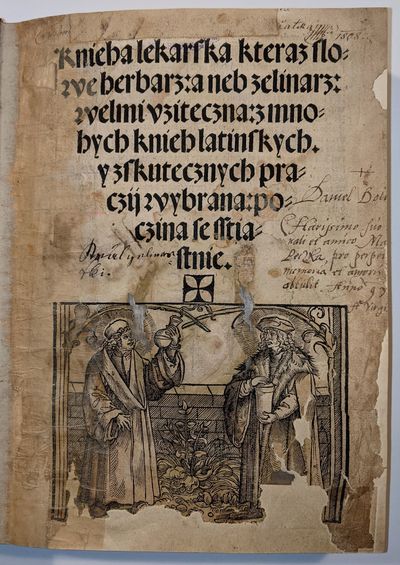 1808
Knieha lekarska kteraz slo-
we herbarz: a neb zelinarz:
welmi vzitecna: z mno-
hych knieh latinskych.
y z skutecznych pra-
czij wybrana: po-
czina se sstia-
stnie.
Daniel
Clarissimo suo
et amico
pro
memoria et
obtulit Anno